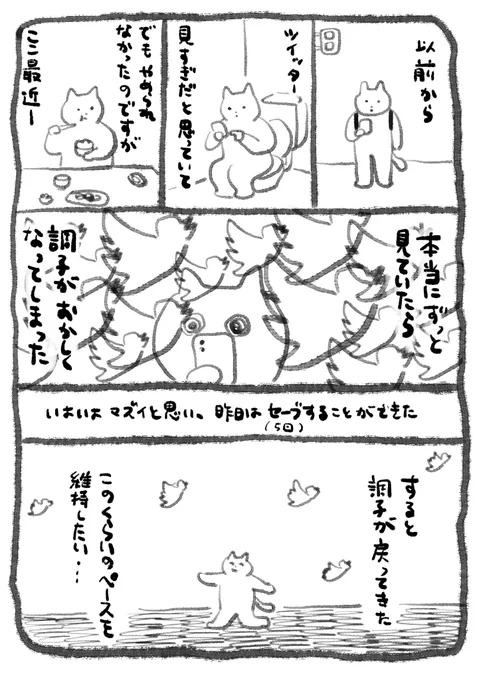 以前から
ツイッター
見すぎだと思っていて
でもやめられ
なかったのですが
ここ最近ー
本当にずっと
見ていたら
調子がおかしく
なってしまった
いよいよマズイと思い、昨日はセーブすることができた
(5回)
すると
調子が戻ってきた
このくらいのペースを
維持したい・・・